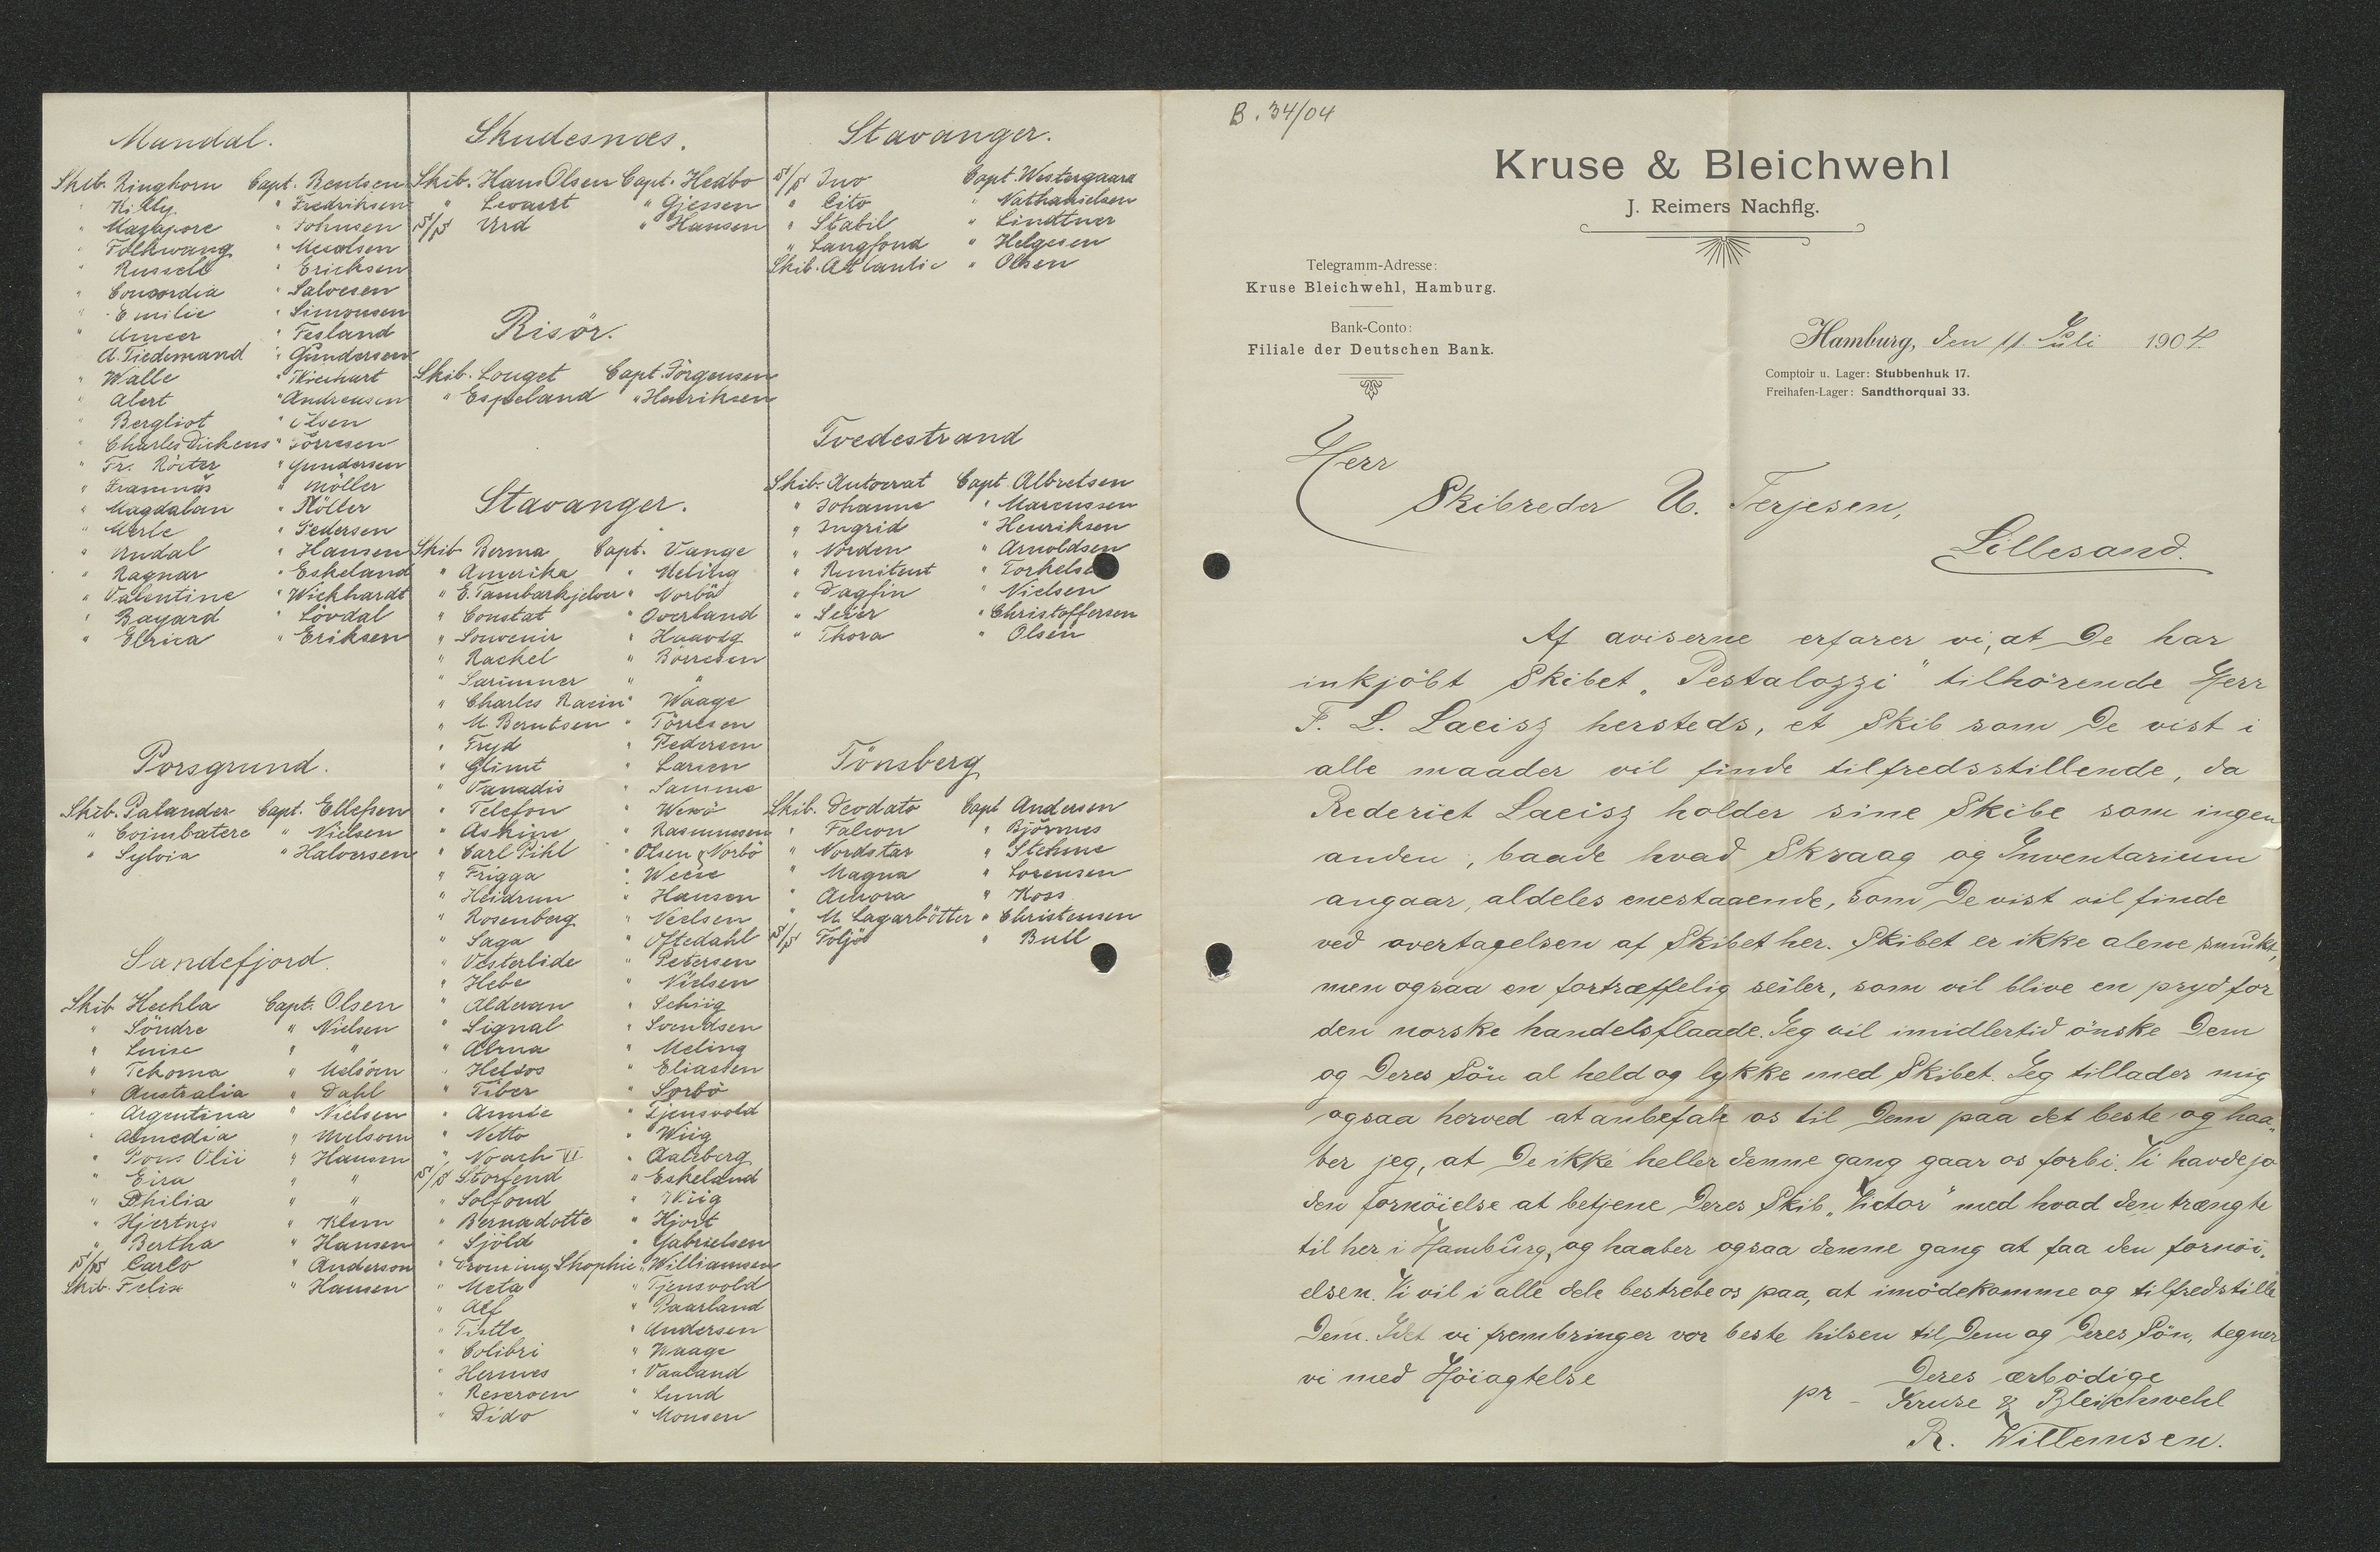 Mandal.
Skib. Ringhorn Capt. Bentsen
" Killy " Fredriksen
" Mazapore " Johnsen
" Folkwang "
" Russell " Ericksen
" Concordia " Salvesen
" Emilie " Simonsen
" Ameer " Fesland
A. Tiedemand " Gundersen
" Walle "
" Alert " Andreasen
" Bergliot " Olsen
" Charles Dickens " Törresen
" Fr. " Gundersen
" Framnäs " Möller
" Magdalan " Möller
" Merle " Pedersen
" Undal " Hansen
" Ragnar " Eskeland
" Valentine " Wickhardt
" Bayard " Lövdal
" Elrica " Eriksen
Porsgrund.
Skib. Palander Capt. Ellefsen
" Coimbatere " Nielsen
" Sylvia " Halversen
Sandefjord.
Skib Heckla Capt. Olsen
" Söndre " Nielsen
" Luise " "
" Tekoma " Melsom
" Australia " Dahl
" Argentina " Nielsen
" Almedia " Melsom
" Pons Ölii " Hansen
" Eira " "
" Philia " "
" Hjertnes " Klem
" Bertha " Hansen
S/S Carlo " Anderson
Skib. Felix " Hansen
Skudesnæs.
Skib. Hans Olsen Capt. Hedbo
" Levaert " Gjessen
S/S Urd " Hansen
Risör.
Skib. Louget Capt. Jörgensen
" Espeland " Henriksen
Stavanger.
Skib Berma Capt. Vange
" Amerika " Meling
" E. Tambarskjelver " Norbö
" Constat " Overland
" Souvenir " Haaveg
" Rachel " Börresen
" Sarimner " "
" Charles Racin " Waage
" M. Berntsen " Törresen
" Fryd " Pedersen
" Glimt " Larsen
" Vanadis " Samme
" Telefon "
" Askine " Rasmussen
" Carl Pihl " Olsen & Norbö
" Frigga "
" Heidrun " Hansen
" Rosenberg " Nielsen
" Saga " Oftedahl
" Vesterlide " Petersen
" Hebe " Nielsen
" Alderan " Schiig
" Signal " Svendsen
" Alrua " Meling
" Helios " Eliassen
" Tiber " Sörbö
" Annie " Tjensvold
" Netto " Wiig
" Noach VI " Aalsberg
S/S Storfond " Eskeland
" Solfond " Wiig
" Bernadotte " Hjort
" Sjöld " Gabrielsen
" Droning Shophie " Williamsen
" Meta " Tjensvold
" Alf " Paarland
" Tistle " Andersen
" Colibri " Waage
" Hermes " Vaaland
" Reseroen " Lund
" Dido " Monsen
Stavanger.
S/S Ino Capt. Westergaard
" Cito " Nathanielsen
" Stabil " Lindtner
" Langfond " Helgesen
Skib. Atlantic " Olsen
Tvedestrand
Skib. Autocrat Capt. Albretsen
" Johanne " Marcussen
" Ingrid " Henriksen
" Norden " Arnoldsen
" Remitent "
" Dagfin " Nielsen
" Seier " Christoffersen
" Thora " Olsen
Tönsberg
Skib. Deodato Capt Andersen
" Falcon " Björnnes
" Nordstar " Stehme
" Magna " Sorensen
" Aurora " Koss
" M. Lagarbötter " Christensen
S/S " Bull
B. 34/04
Kruse & Bleichwehl
J. Reimers Nachflg.
Telegramm-Adresse:
Kruse Bleichwehl, Hamburg.
Bank-Conto:
Filiale der Deutschen Bank.
Hamburg, den 11. Juli 1904.
Comptoir u. Lager: Stubbenhuk 17.
Freihafen-Lager: Sandthorquai 33.
Herr
Skibreder U. Terjesen,
Lillesand.
Af aviserne erfarer vi, at De har
inkjöbt Skibet "Pestalozzi" tilhörende Herr
F. L. Laeisz hersteds, et Skib som De vist i
alle maader vil finde tilfredsstillende, da
Rederiet Laeisz holder sine Skibe som ingen
anden, baade hvad Skraag og Inventarium
angaar, aldeles enestaaende, som De vist vil finde
ved overtagelsen af Skibet her. Skibet er ikke alene smukt,
men ogsaa en fortræffelig seiler, som vil blive en pryd for
den norske handelsflaade. Jeg vil imidlertid önske Dem
og Deres Sön al held og lykke med Skibet. Jeg tillader mig
ogsaa herved at anbefale os til Dem paa det beste og haa„
ber jeg, at De ikke heller denne gang gaar os forbi. Vi havde jo
den fornöielse at betjene Deres Skib "Victor" med hvad den trængte
til her i Hamburg, og haaber ogsaa denne gang at faa den fornöi„
elsen. Vi vil i alle dele bestrebe os paa, at imödekomme og tilfredstille
Dem. Idet vi frembringer vor beste hilsen til Dem og Deres Sön, tegner
vi med Höiagtelse
Deres ærbödige
pr Kruse & Bleichwehl
R. Willemsen.